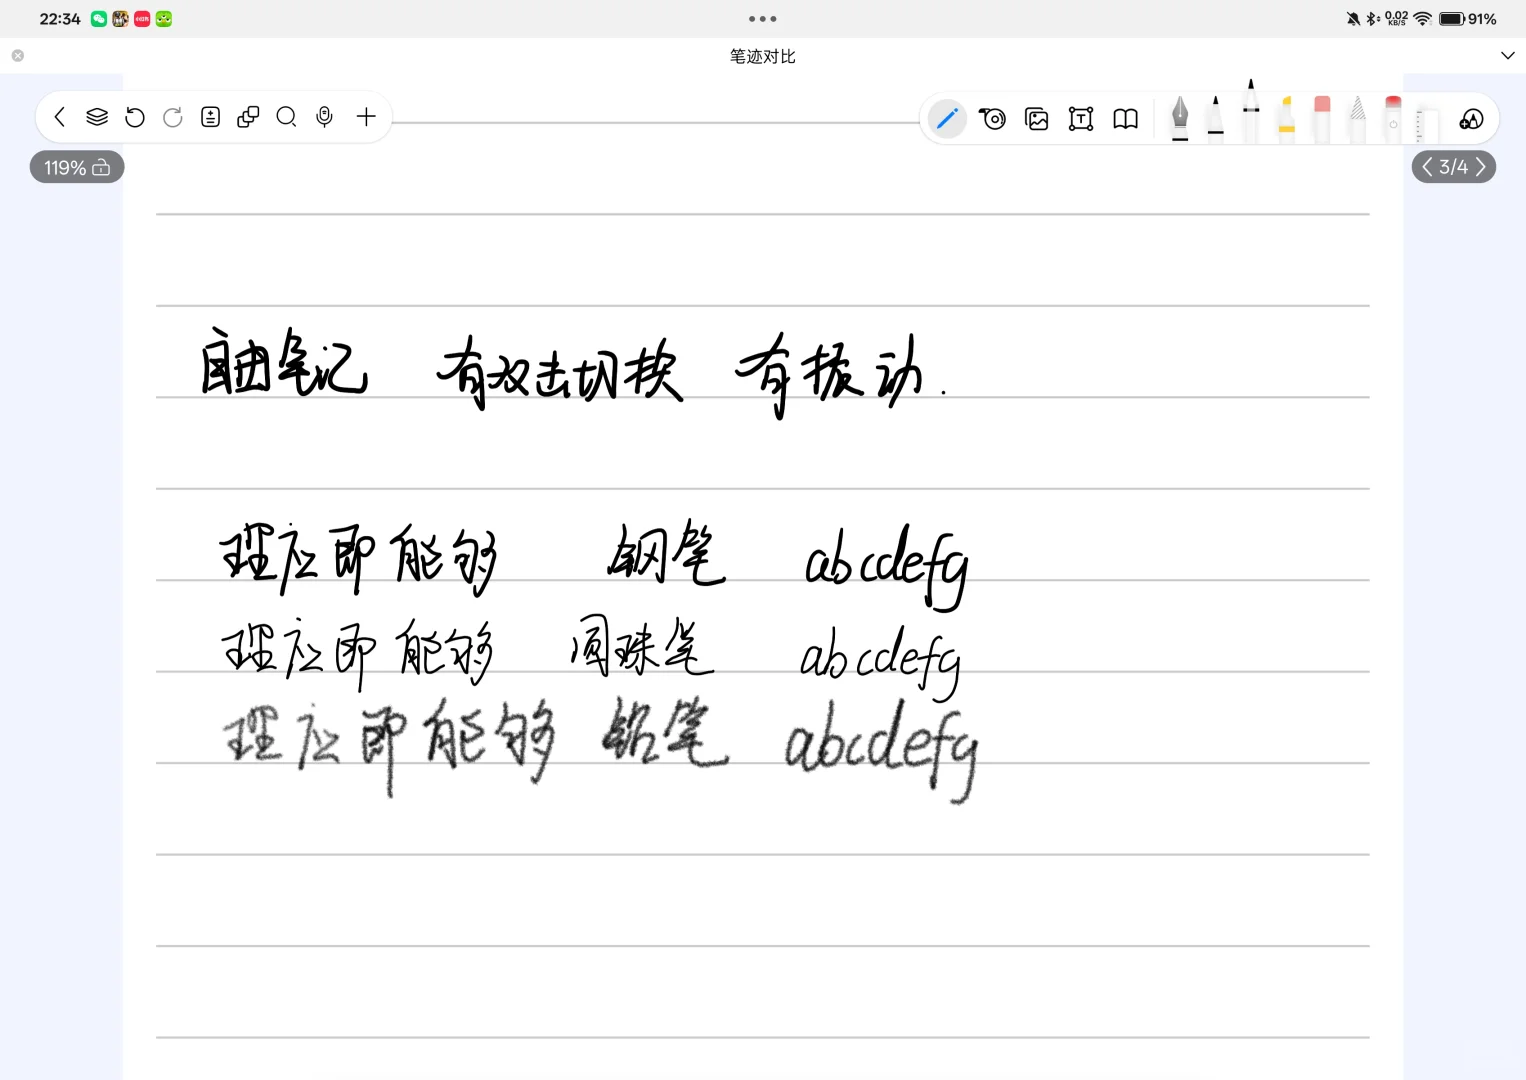 22:34 0.02 KB/S 91%
笔迹对比
119% 3/4
自由笔记 有双击切换 有振动.
理应即能够 钢笔 abcdefg
理应即能够 圆珠笔 abcdefg
理应即能够 铅笔 abcdefg